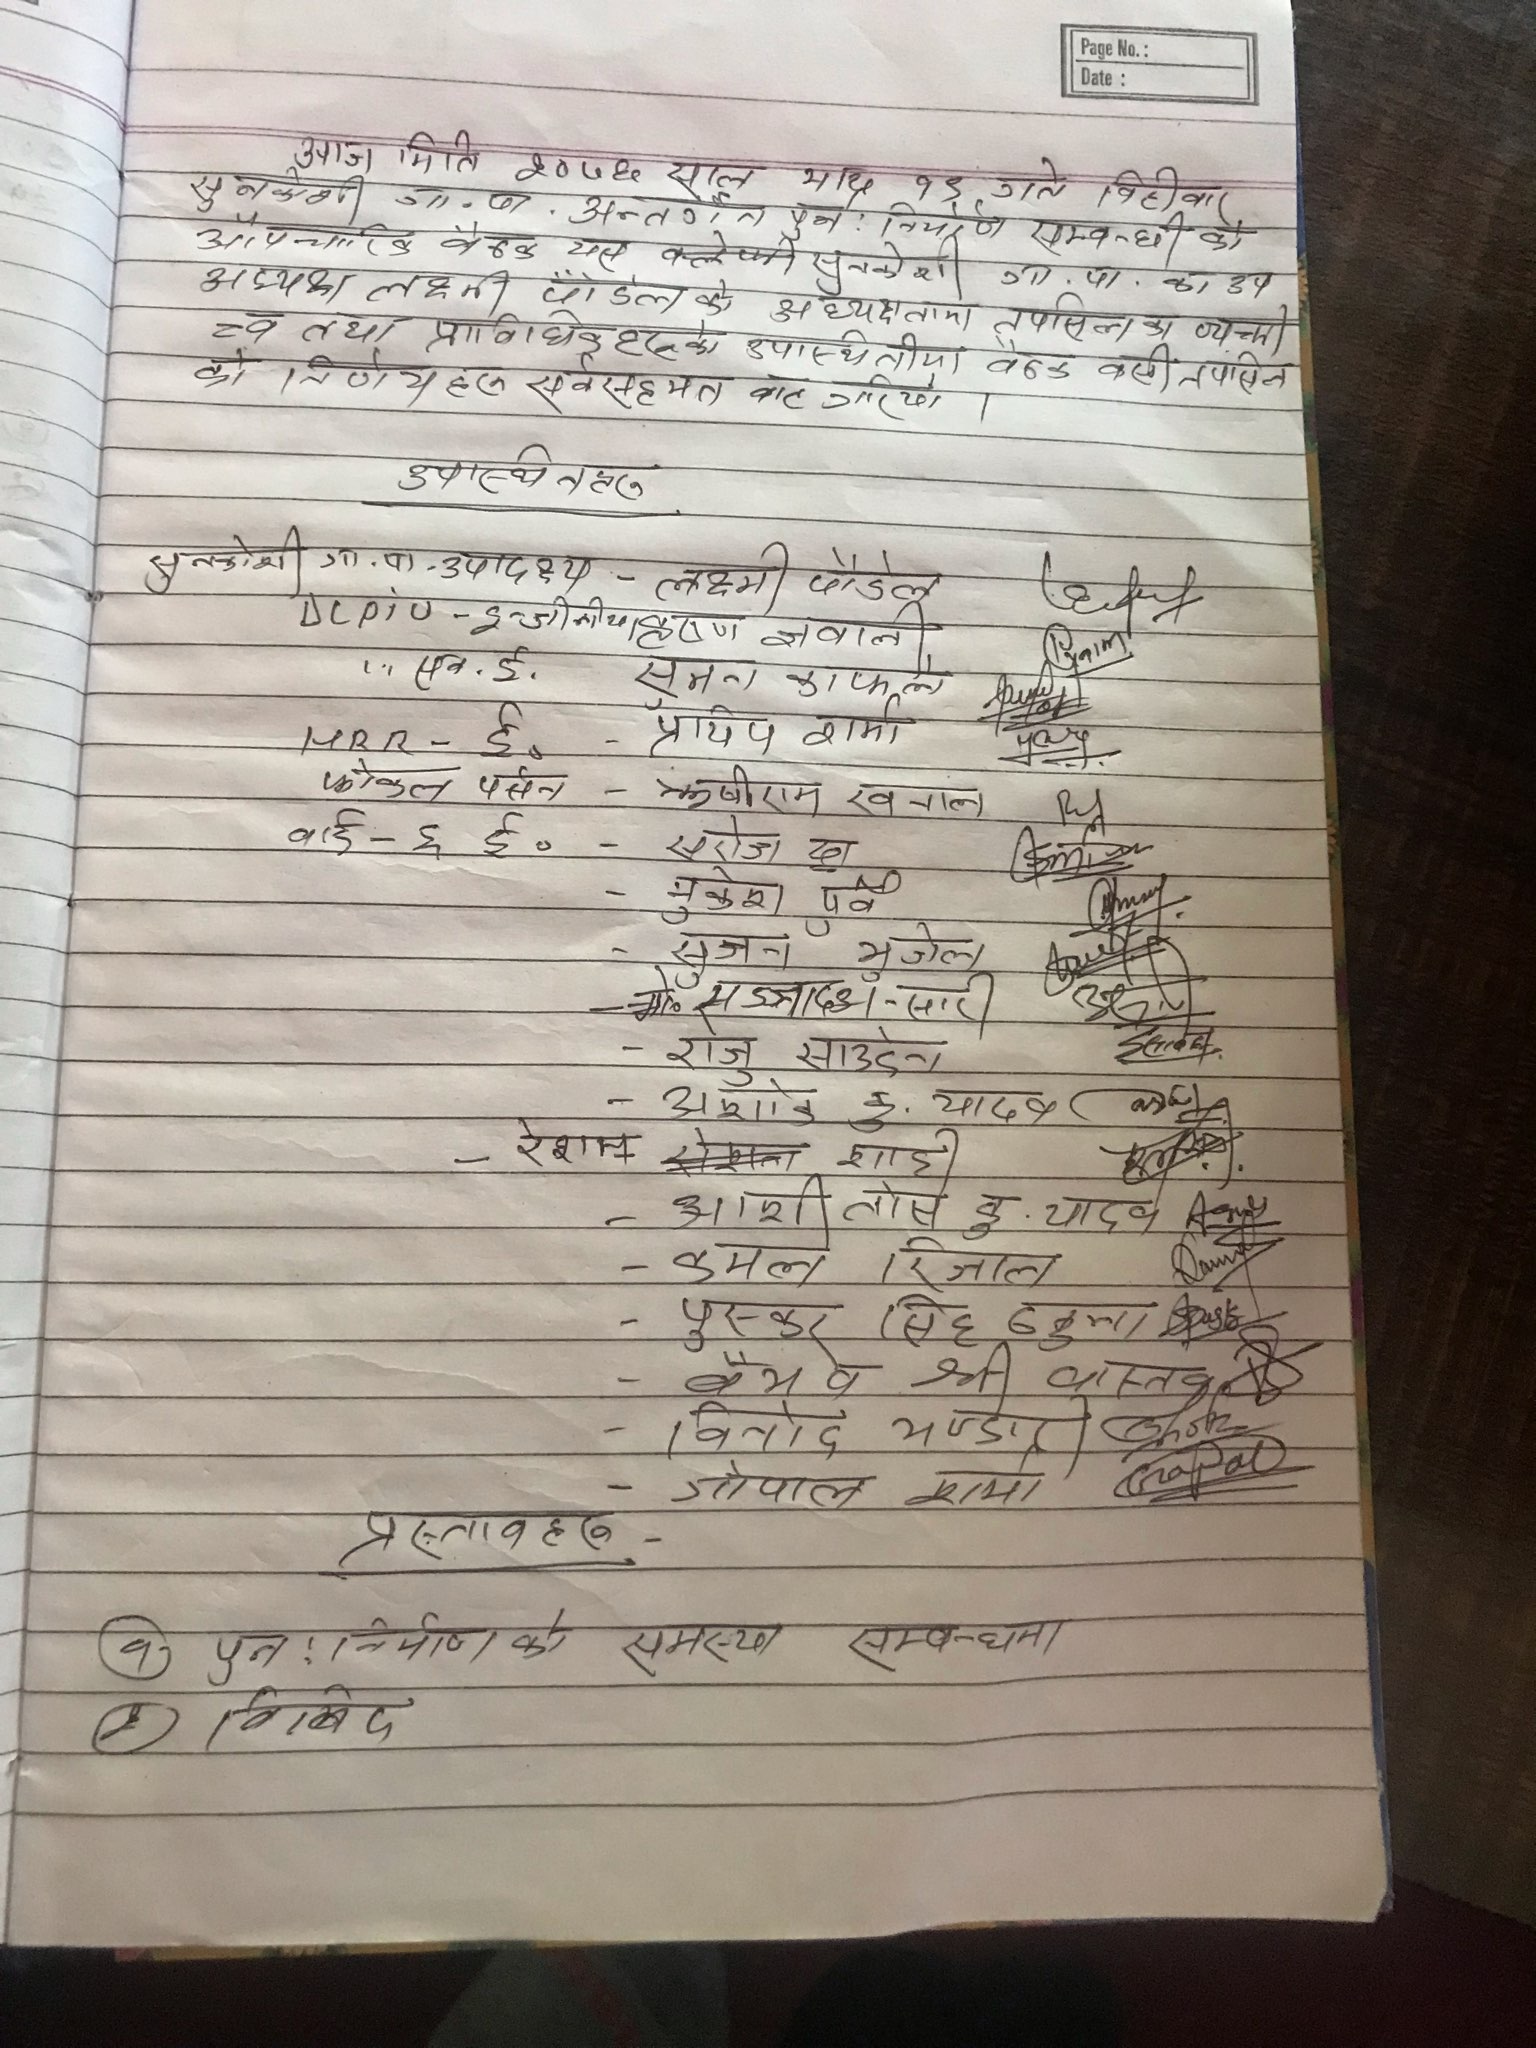 Page No. :
Date :
आज मिति २०७६ साल भाद्र १२ गते विहीवार
सुनकोशी गा.पा. अन्तर्गत पुन: निर्माण सम्बन्धी को
औपचारिक बैठक यस सुनकोशी गा.पा. का उप
अध्यक्ष लक्ष्मी पौडेल को अध्यक्षतामा तपसिल का व्यक्ती
त्व तथा प्राविधिकहरुको उपास्थितीमा बैठक बसी तपसिल
को निर्णयहरु सर्वसहमत बाट गरियो ।
उपास्थितहरु
सुनकोशी गा.पा. उपाद्क्ष्य - लक्ष्मी पौडेल
DLPIU - इन्जीनीयर कृष्ण ज्ञवाली
" एस. ई. सुमन काफ्ले
HRR - ई. - प्रदिप शर्मा
फोकल पर्सन - ऋषीराम खनाल
वार्ड - ६ ई. - सरोज झा
- मुकेश पुर्वे
- सुजन भुजेल
- मो. सज्जाद अन्सारी
- राजु साउदेन
- अशोक कु. यादव
- रेशम शाही
- आशीतोस कु. यादव
- कमल रिजाल
- पुस्कर सिंह ठकुन्ना
- वैभव श्री वास्तव
- विनोद भण्डारी
- गोपाल शर्मा Gopal
प्रस्तावहरु -
१. पुन: निर्माण को समस्या सम्बन्धमा
२ विविद